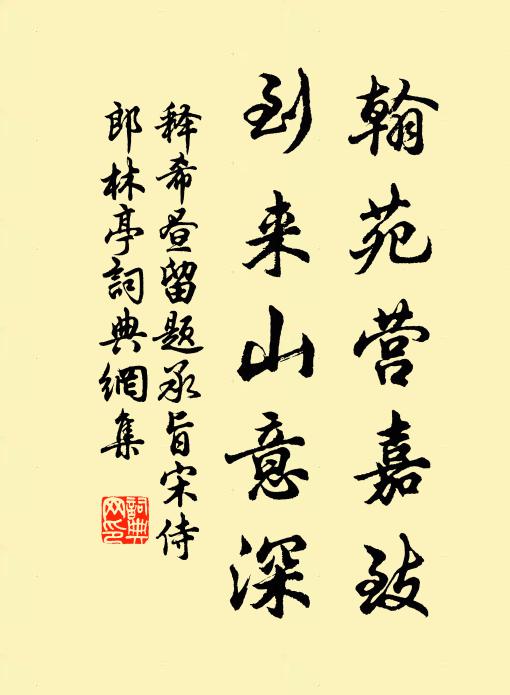 翰苑营嘉致
到来山意深
释希昼留题承旨宋侍
郎林亭詞典網集
詞典